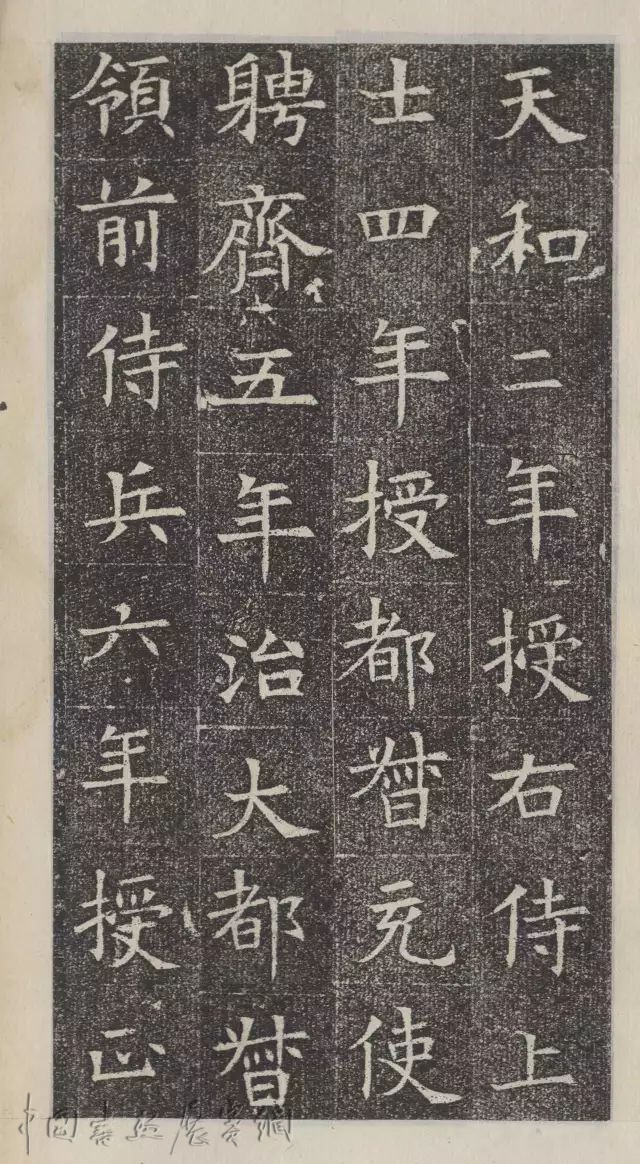 天和二年授右侍上
士四年授都督充使
聘齊五年治大都督
領前侍兵六年授正
中国書法展賽網